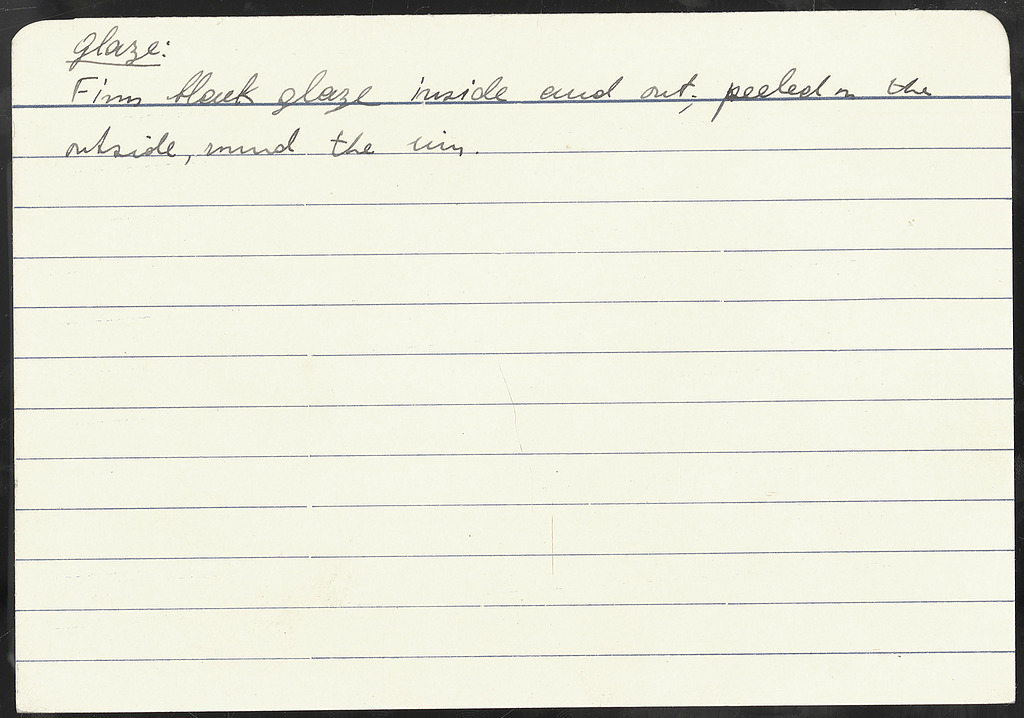 glaze:
Firm black glaze inside and out; peeled on the
outside, round the rim.